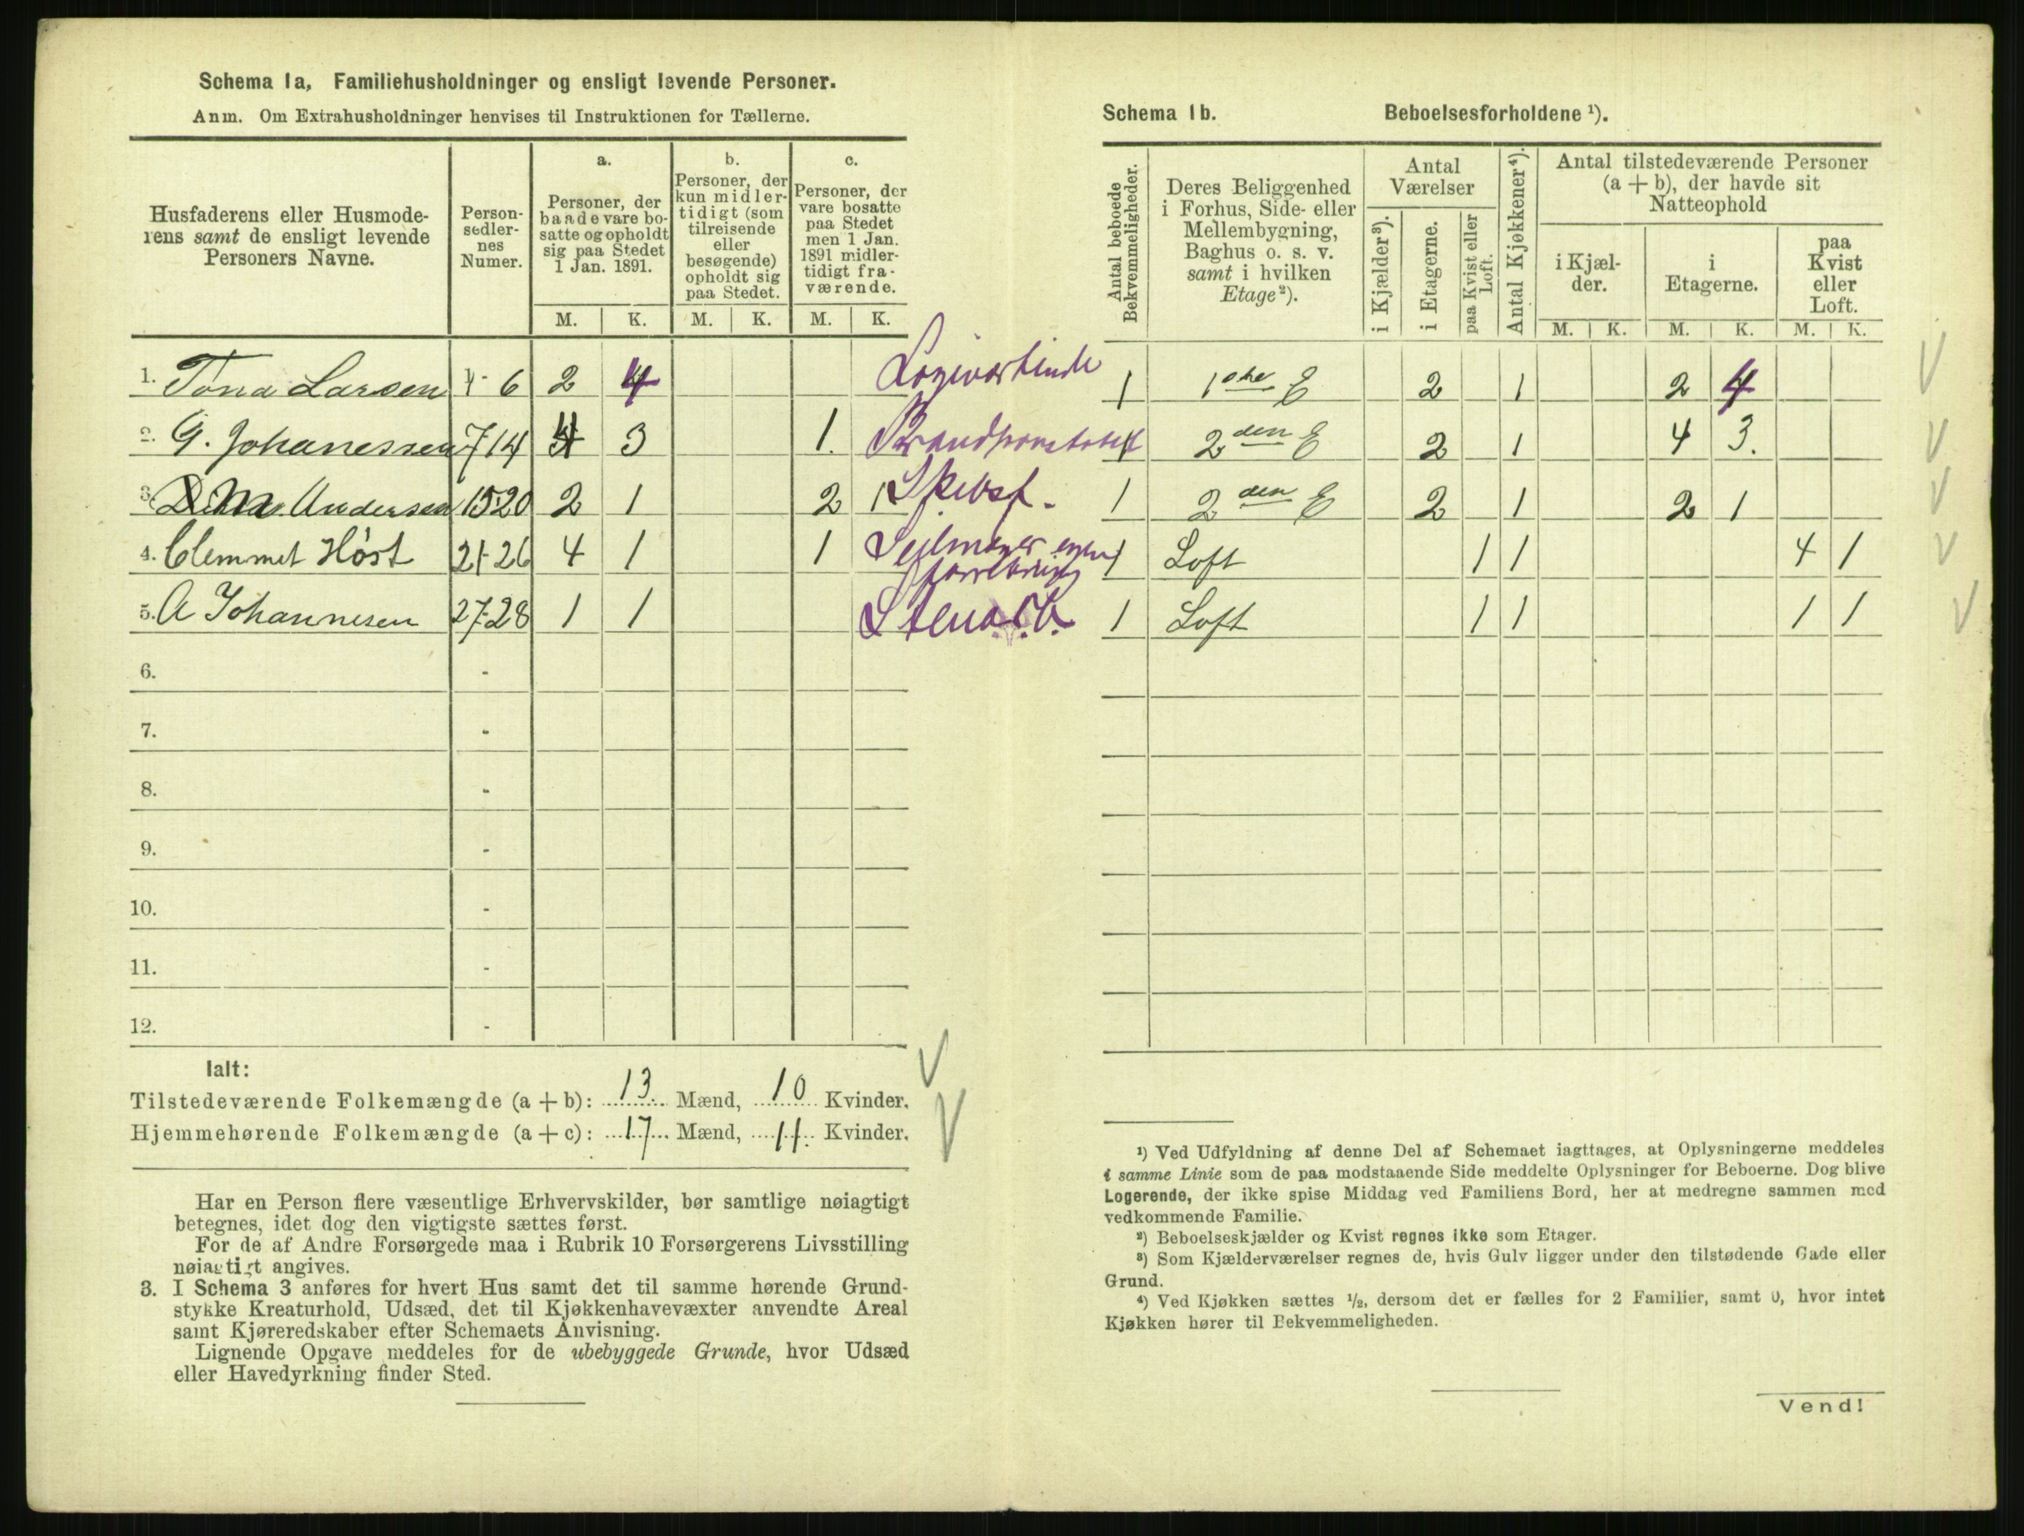 Schema 1a, Familiehusholdninger og ensligt levende Personer.
Anm. Om Extrahusholdninger henvises til Instruktionen for Tællerne.
Husfaderens eller Husmoderens samt de ensligt levende Personers Navne.
Personsedlernes Numer.
a.
Personer, der baade vare bosatte og opholdt sig paa Stedet 1 Jan. 1891.
b.
Personer, der kun midlertidigt (som tilreisende eller besøgende) opholdt sig paa Stedet.
c.
Personer, der vare bosatte paa Stedet men 1 Jan. 1891 midlertidigt fraværende.
M. K. M. K. M. K.
1. Tona Larsen 1-6 2 4 Logivertinde
2. G. Johanessen 7 14 4 3 1. Brandkonstabel
3. Andersen 15-20 2 1 2 1
4. Clemmet Høst 21-26 4 1 1 Sejlmager egen
5. A Johannesen 27-28 1 1
6. -
7. -
8. -
9. -
10. -
11. -
12. -
Ialt:
Tilstedeværende Folkemængde (a + b): 13 Mænd, 10 Kvinder.
Hjemmehørende Folkemængde (a + c): 17 Mænd, 11 Kvinder.
Har en Person flere væsentlige Erhvervskilder, bør samtlige nøiagtigt
betegnes, idet dog den vigtigste sættes først.
For de af Andre Forsørgede maa i Rubrik 10 Forsørgerens Livsstilling
nøiagtigt angives.
3. I Schema 3 anføres for hvert Hus samt det til samme hørende Grund-
stykke Kreaturhold, Udsæd, det til Kjøkkenhavevæxter anvendte Areal
samt Kjøreredskaber efter Schemaets Anvisning.
Lignende Opgave meddeles for de ubebyggede Grunde, hvor Udsæd
eller Havedyrkning finder Sted.
Schema 1b. Beboelsesforholdene ¹).
Antal beboede Bekvemmeligheder.
Deres Beliggenhed i Forhus, Side- eller Mellembygning, Baghus o. s. v. samt i hvilken Etage²).
Antal Værelser
i Kjælder³).
i Etagerne.
paa Kvist eller Loft.
Antal Kjøkkener⁴).
Antal tilstedeværende Personer (a + b), der havde sit Natteophold
i Kjælder.
i Etagerne.
paa Kvist eller Loft.
M. K. M. K. M. K.
1 1ste E 2 1 2 4
1 2den E 2 1 4 3.
1 2den E 2 1 2 1
1 Loft 1 1 4 1
1 Loft 1 1 1 1
¹) Ved Udfyldning af denne Del af Schemaet iagttages, at Oplysningerne meddeles
i samme Linie som de paa modstaaende Side meddelte Oplysninger for Beboerne. Dog blive
Logerende, der ikke spise Middag ved Familiens Bord, her at medregne sammen med
vedkommende Familie.
²) Beboelseskjælder og Kvist regnes ikke som Etager.
³) Som Kjælderværelser regnes de, hvis Gulv ligger under den tilstødende Gade eller
Grund.
⁴) Ved Kjøkken sættes ½, dersom det er fælles for 2 Familier, samt 0, hvor intet
Kjøkken hører til Bekvemmeligheden.
Vend!